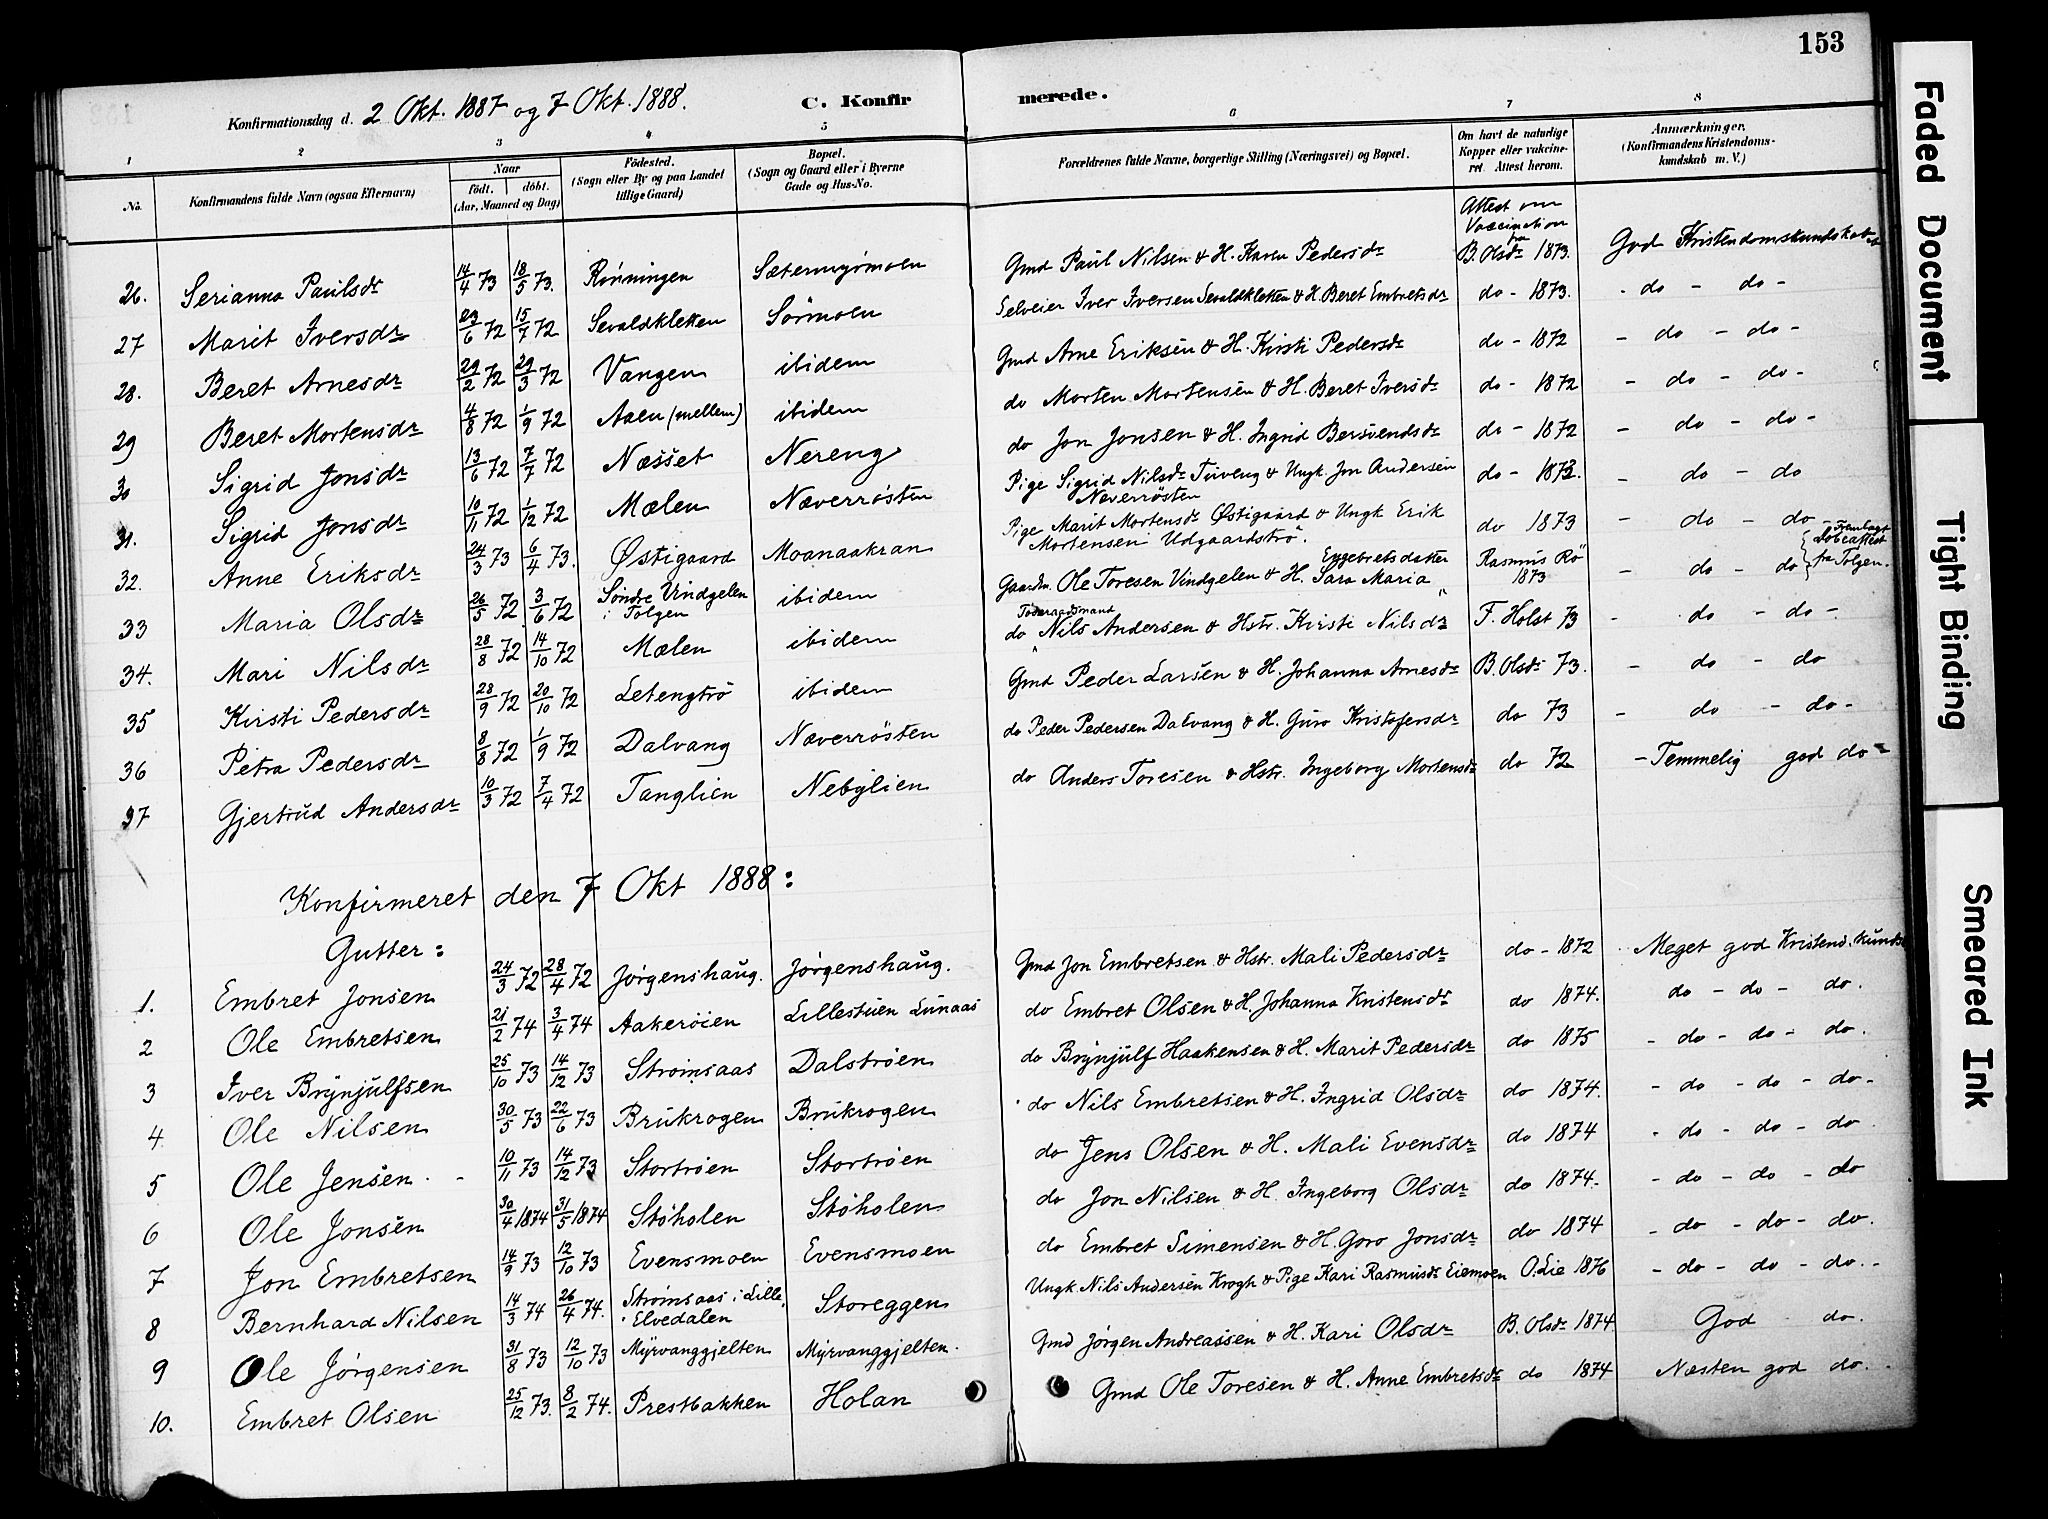 153
Konfirmationsdag d. 2 Okt. 1887 og 7 Okt. 1888. C. Konfirmerede.
1 2 3 4 5 6 7 8
No. Konfirmandens fulde Navn (ogsaa Efternavn) Naar født. døbt. (Aar, Maaned og Dag) Fødested. (Sogn eller By og paa Landet tillige Gaard) Bopæl. (Sogn og Gaard eller i Byerne Gade og Hus-No. Forældrenes fulde Navne, borgerlige Stilling (Næringsvei) og Bopæl. Om havt de naturlige Kopper eller vakcineret. Attest herom. Anmærkninger. (Konfirmandens Kristendomskundskab m. V.)
26. Serianna Paulsdr 14/4 73 18/5 73. Rønningen Sætermyrmoen Gmd Paul Nilsen & H. Karen Pedersdr Attest om Vaccination fra B. Olsdr 1873. God Kristendomskundskab
27 Marit Iversdr 23/6 72 15/7 72 Sevaldkletten Sörmoen Selveier Iver Iversen Sevaldkletten & H. Beret Embretsdr do - 1873. - do - do -
28. Beret Arnesdr 29/2 72 29/3 72 Vangen ibidem Gmd Arne Eriksen & H. Kirsti Pedersdr do - 1872 - do - do -
29 Beret Mortensdr 4/8 72 1/9 72 Aaen (mellem) ibidem do Morten Mortensen & H. Beret Iversdr do - 1872 - do - do -
30 Sigrid Jonsdr 13/6 72 7/7 72 Næsset Nereng do Jon Jonsen & H. Ingrid Bersvendsdr do - 1872 - do - do -
31. Sigrid Jonsdr 10/11 72 1/12 72 Mælen Næverrösten Pige Sigrid Nilsdr Tuveng & Ungk. Jon Andersen Næverrösten do - 1873. - do - do
32. Anne Eriksdr 24/3 73 6/4 73. Østigaard Moanaakran Pige Marit Mortensdr Østigaard & Ungk Erik Mortensen Udgaardströ. do 1873 - do - do -
33 Maria Olsdr 26/5 72 3/6 72 Søndre Vindgelen i Tolgen ibidem Gaardm. Ole Toresen Vindgelen & H. Sara Maria Engebretsdatter Rasmus Rö 1873 - do - do { Fremlagt dobeattest fra Tolgen.
34. Mari Nilsdr 28/8 72 14/10 72 Mælen ibidem do Föderaadsmand Nils Andersen & Hstr. Kirsti Nilsdr F. Holst 73 - do - do -
35 Kirsti Pedersdr 28/9 72 20/10 72 Letengtrö ibidem Gmd Peder Larsen & H. Johanna Arnesdr B. Olsdr 73. - do - do
36 Petra Pedersdr 8/8 72 1/9 72 Dalvang Næverrösten do Peder Pedersen Dalvang & H. Guro Kristofersdr do 73 - do - do -
37 Gjertrud Andersdr 10/3 72 7/4 72 Tanglien Nebylien do Anders Toresen & Hstr. Ingeborg Mortensdr do 72 - Temmelig god do -
Konfirmeret den 7 Okt 1888:
Gutter:
1. Embret Jonsen 24/3 72 28/4 72 Jørgenshaug. Jørgenshaug. Gmd Jon Embretsen & Hstr. Mali Pedersdr do - 1872 Meget god Kristend. kundsk
2 Ole Embretsen 21/2 74 3/4 74 Aakerøien Lillestuen Lunaas do Embret Olsen & H. Johanna Kristensdr do 1874. do - do - do.
3 Iver Brynjulfsen 25/10 73 14/12 73 Strømsaas Dalstrøen do Brynjulf Haakensen & H. Marit Pedersdr do 1875 - do - do - do.
4. Ole Nilsen 30/5 73 22/6 73 Brukrogen Brukrogen do Nils Embretsen & H. Ingrid Olsdr do 1874. - do - do - do -
5 Ole Jensen 10/11 73 14/12 73 Stortrøen Stortrøen do Jens Olsen & H. Mali Evensdr do 1874 - do - do - do
6 Ole Jonsen 30/4 1874 31/5 1874 Støholen Støholen do Jon Nilsen & H. Ingeborg Olsdr do 1874. - do - do - do
7 Jon Embretsen 14/9 73 12/10 73 Evensmoen Evensmoen do Embret Simensen & H. Goro Jonsdr do 1874 - do - do - do.
8 Bernhard Nilsen 14/3 74 26/4 74. Strømsaas i Lille Elvedalen Storeggen Ungk Nils Andersen Krogh & Pige Kari Rasmusdr Eiemoen O. Lie 1876 - do - do - do. -
9 Ole Jørgensen 31/8 73 12/10 73 Myrvanggjelten Myrvanggjelten. Gmd Jörgen Andreassen & H. Kari Olsdr B. Olsdr 1874. God do.
10. Embret Olsen 25/12 73. 8/2 74. Prestbakken Holan Gmd Ole Toresen & H. Anne Embretsdr do 1874 Næsten god do.
Faded Document
Tight Binding
Smeared Ink